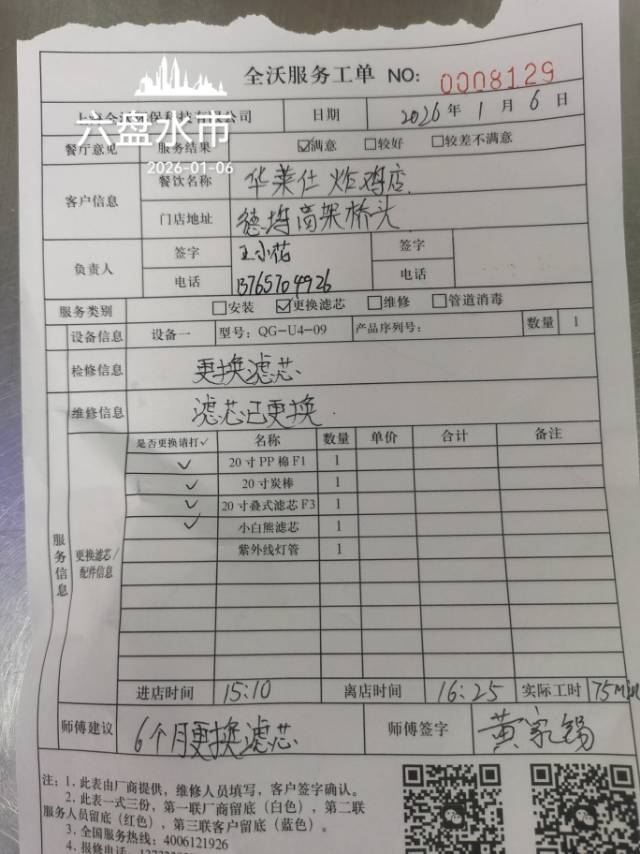 全沃服务工单 NO: 0008129
六盘水市
2026-01-06
日期 2026年1月6日
餐厅意见 服务结果 ☑满意 □较好 □较差不满意
客户信息 餐饮名称 华莱仕炸鸡店
门店地址 高架桥头
负责人 签字 王小花 签字
电话 13765704926 电话
服务类别 □安装 ☑更换滤芯 □维修 □管道消毒
设备信息 设备一 型号: QG-U4-09 产品序列号: 数量 1
检修信息 更换滤芯
维修信息 滤芯已更换
服务信息
更换滤芯/配件信息
是否更换请打✓ 名称 数量 单价 合计 备注
✓ 20寸PP棉F1 1
✓ 20寸炭棒 1
✓ 20寸叠式滤芯F3 1
✓ 小白熊滤芯 1
紫外线灯管 1
进店时间 15:10 离店时间 16:25 实际工时 75Min
师傅建议 6个月更换滤芯 师傅签字 黄家锡
注: 1. 此表由厂商提供, 维修人员填写, 客户签字确认。
2. 此表一式三份, 第一联厂商留底(白色), 第二联
服务人员留底(红色), 第三联客户留底(蓝色)。
3. 全国服务热线: 4006121926
4. 报修电话: